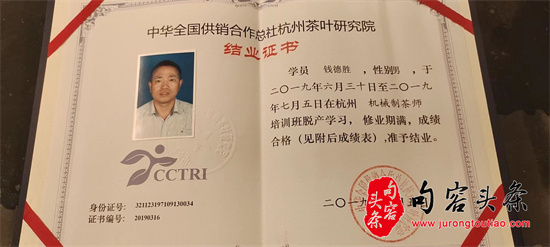 中华全国供销合作总社杭州茶叶研究院
结业证书
学员 钱德胜 ，性别男 ，于
二〇一九年六月三十日至二〇一九
年七月五日在杭州 机械制茶师
培训班脱产学习，修业期满，成绩
合格（见附后成绩表），准予结业。
CCTRI
身份证号： 321123197109130034
证书编号： 20190316
二〇一九
句容头条
句容头条
www.jurongtoutiao.com